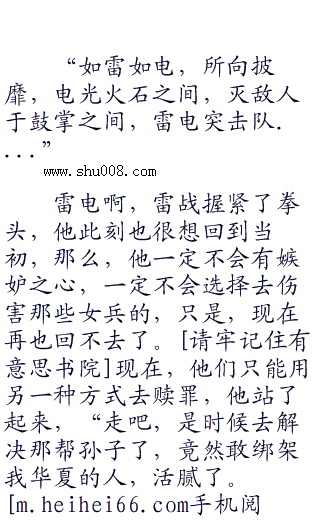 “如雷如电，所向披
靡，电光火石之间，灭敌人
于鼓掌之间，雷电突击队.
...”
www.shu008.com
雷电啊，雷战握紧了拳
头，他此刻也很想回到当
初，那么，他一定不会有嫉
妒之心，一定不会选择去伤
害那些女兵的，只是，现在
再也回不去了。[请牢记住有
意思书院]现在，他们只能用
另一种方式去赎罪，他站了
起来，“走吧，是时候去解
决那帮孙子了，竟然敢绑架
我华夏的人，活腻了。
[m.heihei66.com手机阅